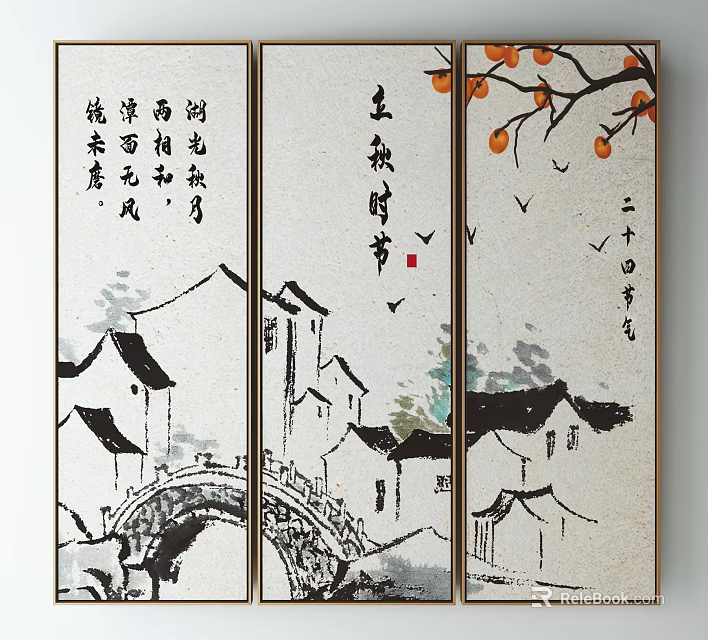 湖光秋月
两相和，
潭面无风
镜未磨。
立秋时节
二十四节气
ReleBook.com